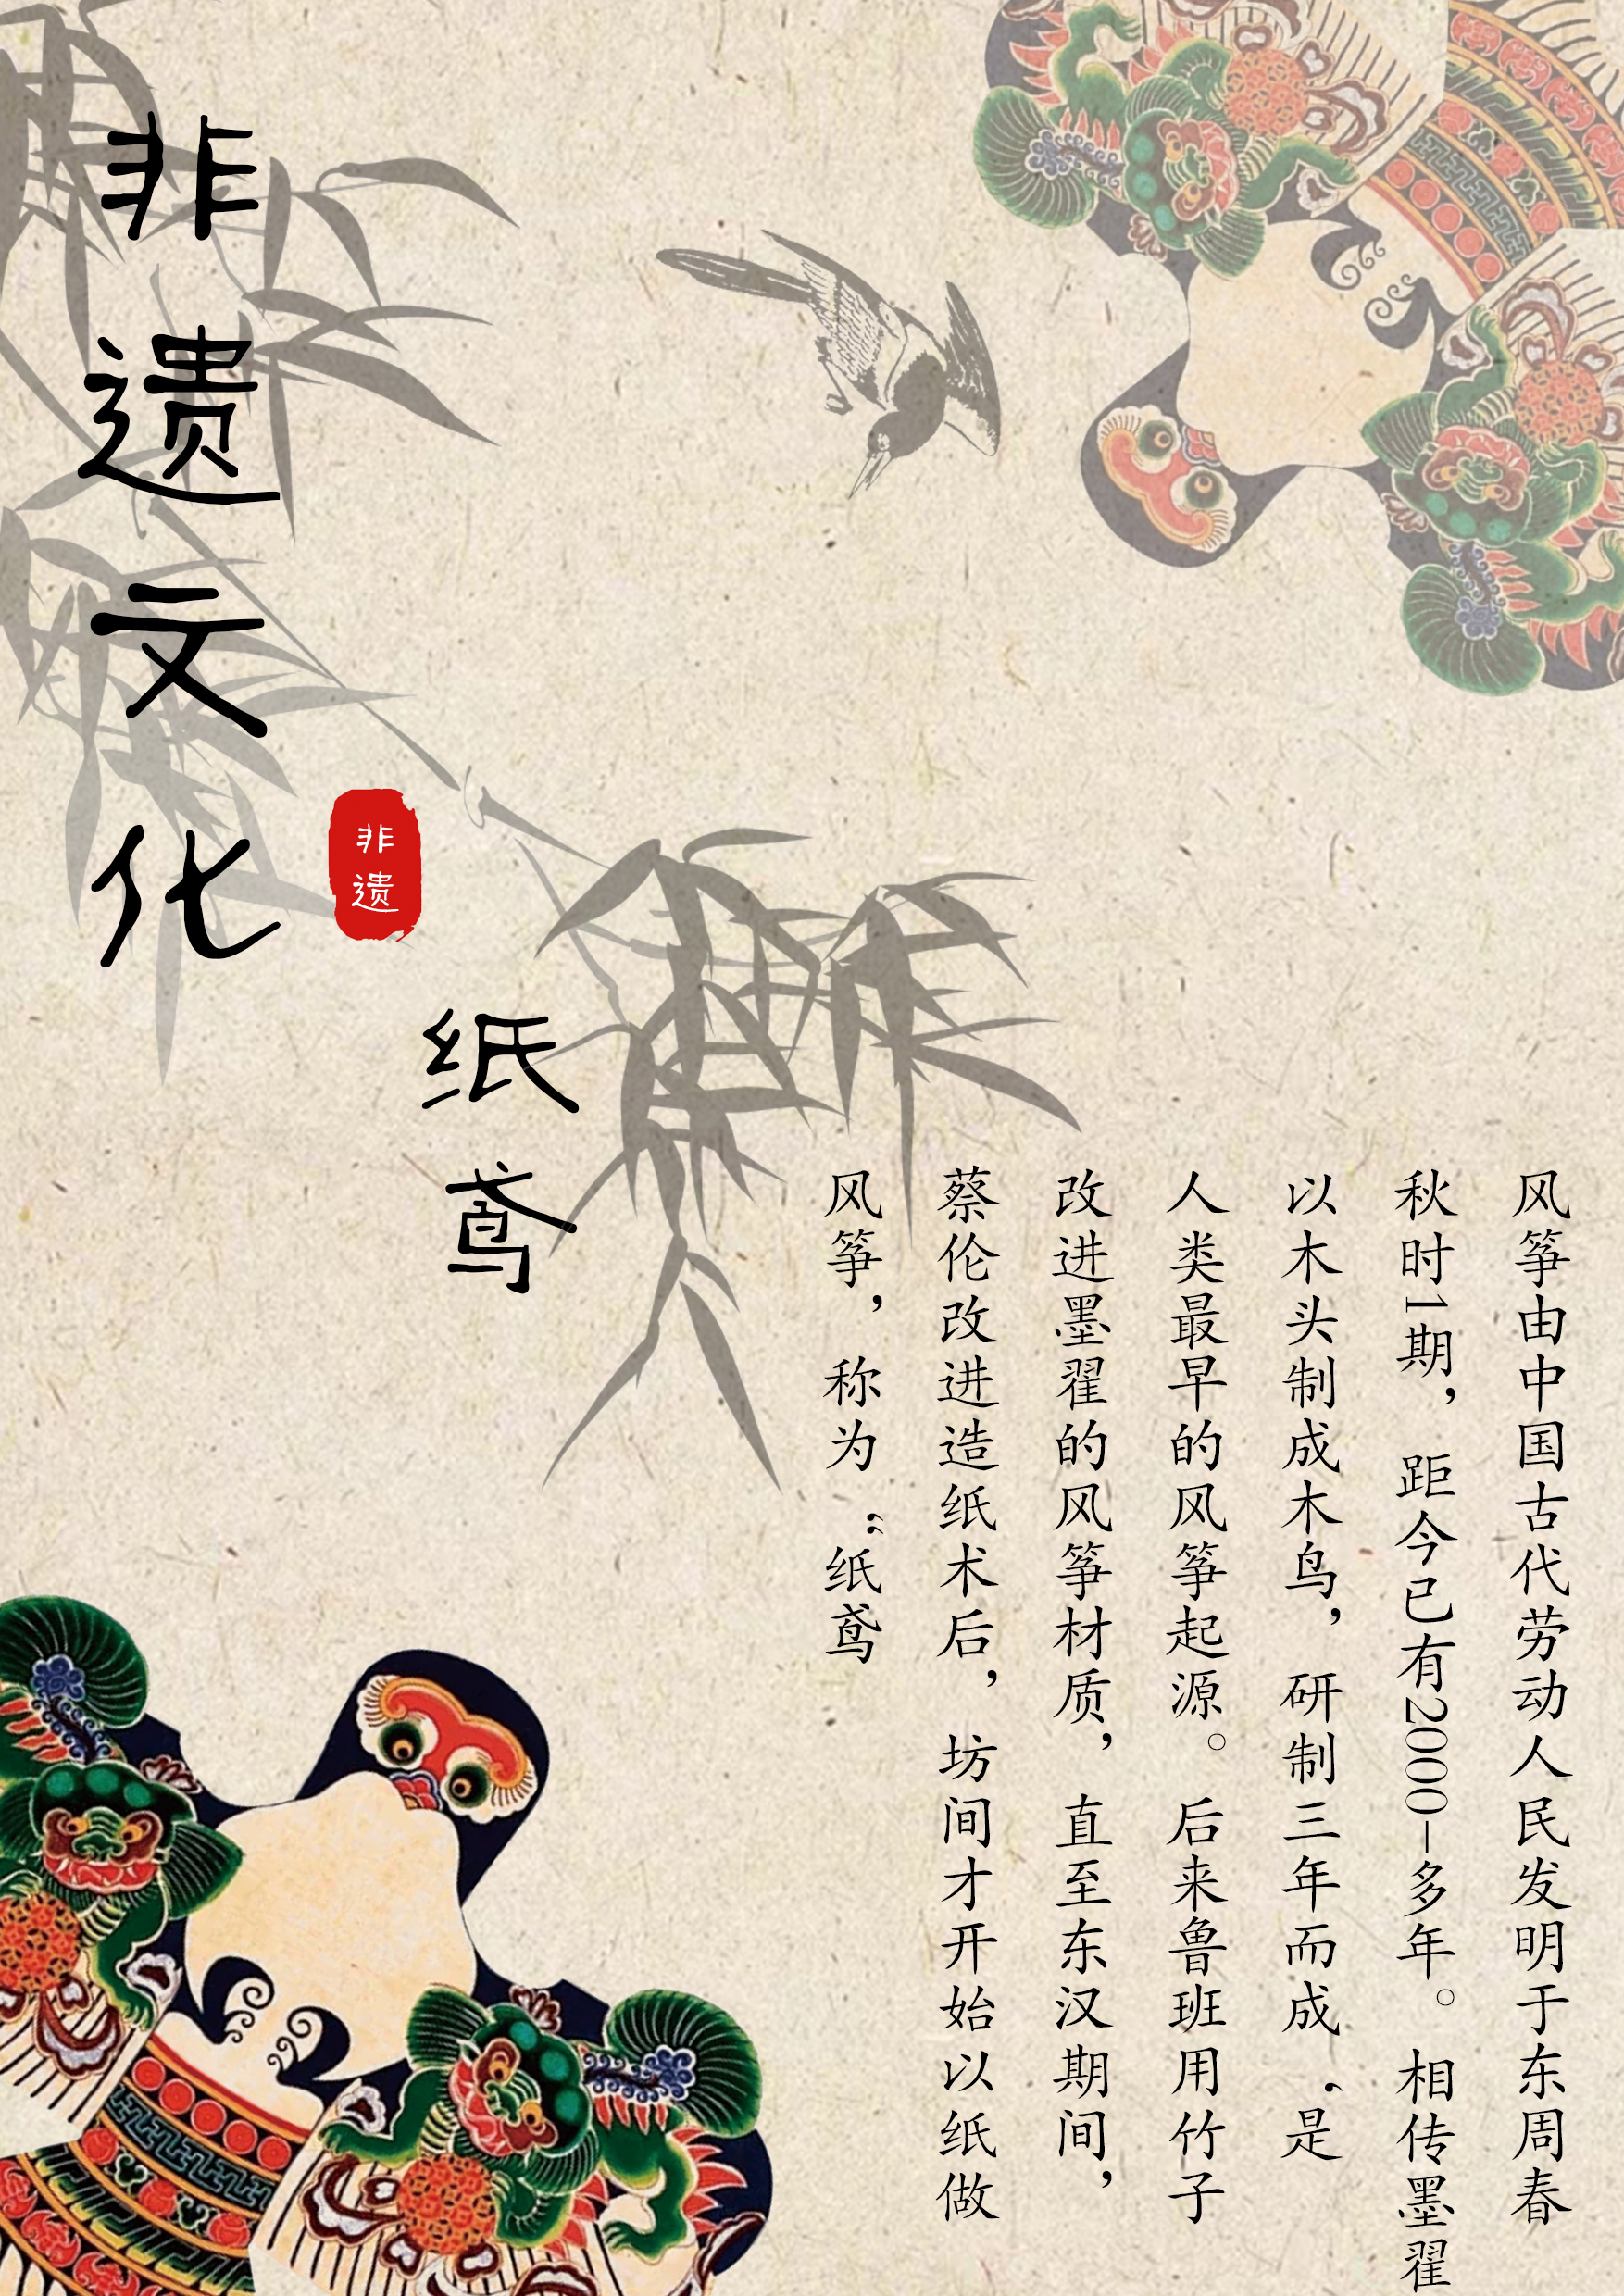 非遗文化
非遗
纸鸢
风筝由中国古代劳动人民发明于东周春
秋时1期，距今已有2000-多年。相传墨翟
以木头制成木鸟，研制三年而成‘是
人类最早的风筝起源。后来鲁班用竹子
改进墨翟的风筝材质，直至东汉期间，
蔡伦改进造纸术后，坊间才开始以纸做
风筝，称为“纸鸢